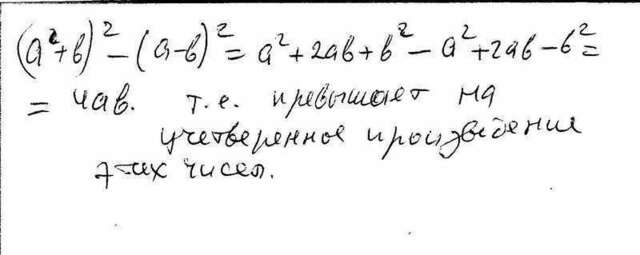 (a²+b)² - (a-b)² = a²+2ab+b² - a²+2ab-b² =
= 4ab. т.е. превышает на
учетверенное произведение
этих чисел.